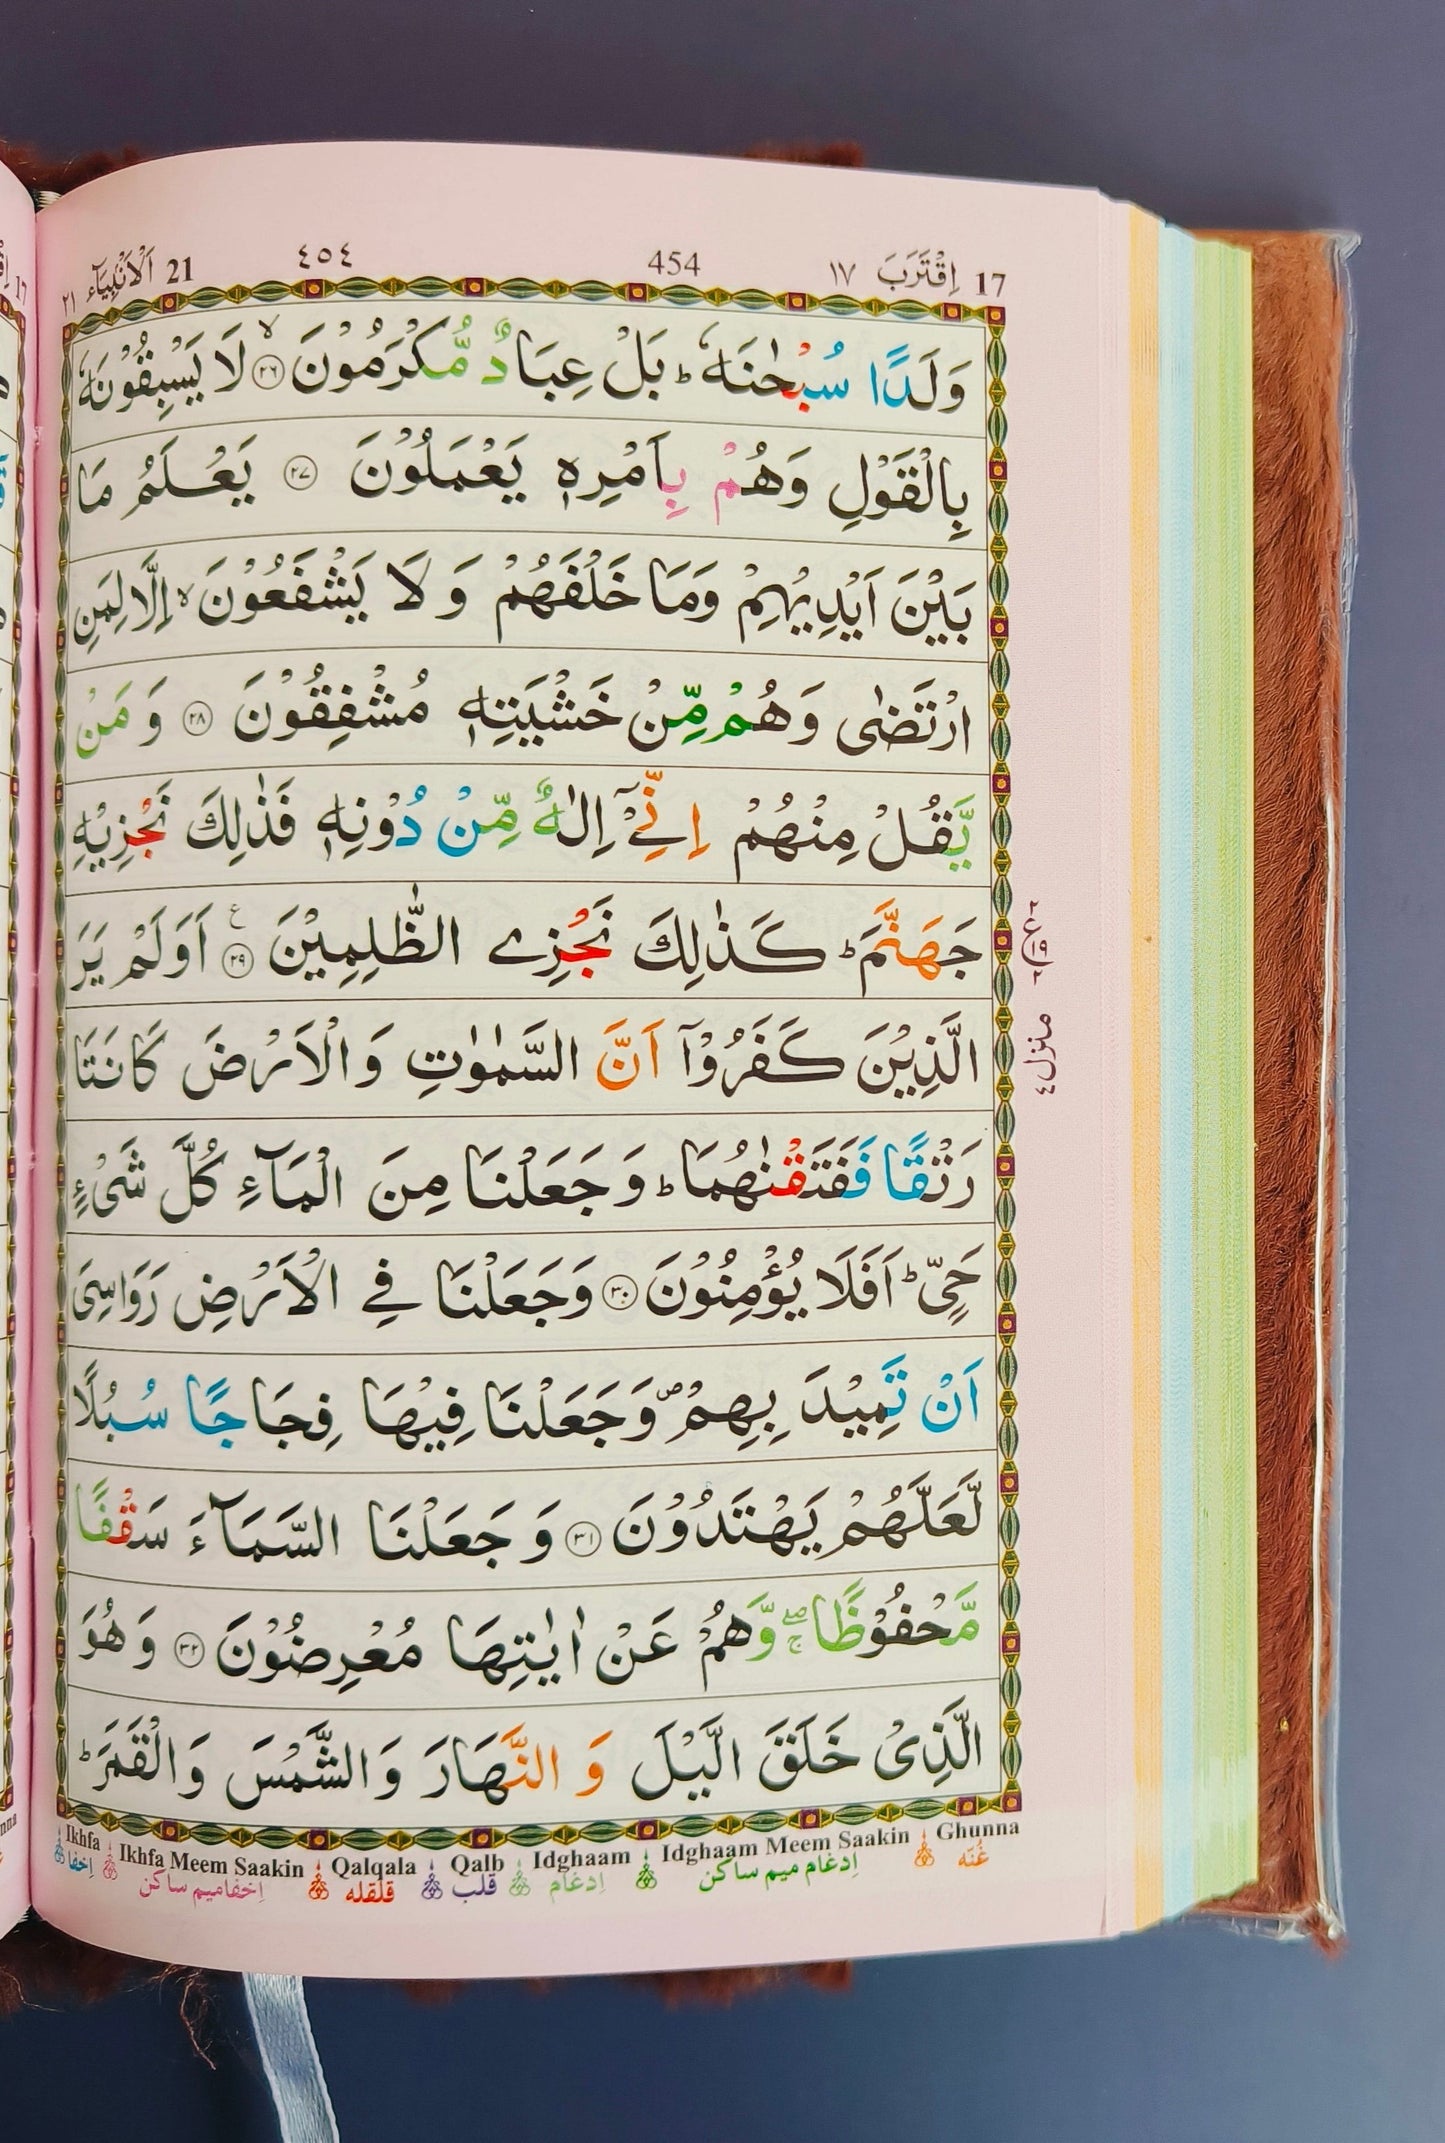 17 اِقْتَرَبَ ١٧ 454 ٤٥٤ 21 اَلْاَنْۢبِيَآء ٢١
وَلَدًا سُبْحٰنَهٗ ؕ بَلْ عِبَادٌ مُّكْرَمُوْنَ ۙ﴿٢٦﴾ لَا يَسْبِقُوْنَهٗ
بِالْقَوْلِ وَهُمْ بِاَمْرِهٖ يَعْمَلُوْنَ ﴿٢٧﴾ يَعْلَمُ مَا
بَيْنَ اَيْدِيْهِمْ وَمَا خَلْفَهُمْ وَ لَا يَشْفَعُوْنَ ۙ اِلَّا لِمَنِ
ارْتَضٰى وَهُمْ مِّنْ خَشْيَتِهٖ مُشْفِقُوْنَ ﴿٢٨﴾ وَ مَنْ
يَّقُلْ مِنْهُمْ اِنِّيْۤ اِلٰهٌ مِّنْ دُوْنِهٖ فَذٰلِكَ نَجْزِيْهِ
جَهَنَّمَ ؕ كَذٰلِكَ نَجْزِي الظّٰلِمِيْنَ ﴿٢٩﴾ ع اَوَلَمْ يَرَ
الَّذِيْنَ كَفَرُوْۤا اَنَّ السَّمٰوٰتِ وَ الْاَرْضَ كَانَتَا
رَتْقًا فَفَتَقْنٰهُمَا ؕ وَ جَعَلْنَا مِنَ الْمَآءِ كُلَّ شَیْءٍ
حَيٍّ ؕ اَفَلَا يُؤْمِنُوْنَ ﴿٣٠﴾ وَجَعَلْنَا فِي الْاَرْضِ رَوَاسِیَ
اَنْ تَمِيْدَ بِهِمْ ۪ وَجَعَلْنَا فِيْهَا فِجَاجًا سُبُلًا
لَّعَلَّهُمْ يَهْتَدُوْنَ ﴿٣١﴾ وَ جَعَلْنَا السَّمَآءَ سَقْفًا
مَّحْفُوْظًا ۚۖ وَّهُمْ عَنْ اٰيٰتِهَا مُعْرِضُوْنَ ﴿٣٢﴾ وَ هُوَ
الَّذِیْ خَلَقَ الَّيْلَ وَ النَّهَارَ وَ الشَّمْسَ وَ الْقَمَرَ ؕ
٢ ع ١٩ ٢
منزل ٤
Ikhfa Ikhfa Meem Saakin Qalqala Qalb Idghaam Idghaam Meem Saakin Ghunna
غُنّه اِدغام میم ساکن اِدغام قلب قلقله اِخفامیم ساکن اِخفا